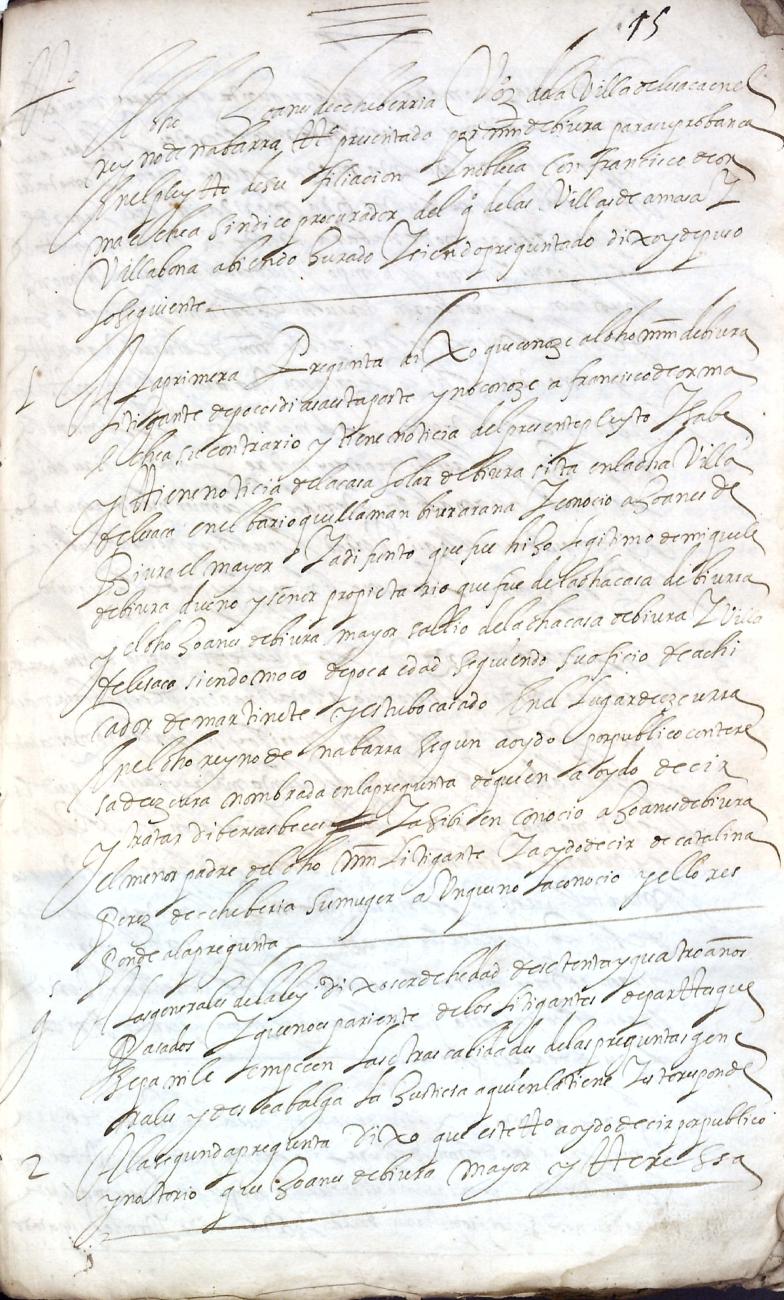 15
Tº
El dho Joanes de echeberria Vºz de la Villa de lesaca en el
reyno de nabarra ttº presentado por mīn de biura para su probança
En el pleytto de su filiacion E nobleça con francisco de or
maechea sindico procurador del qº de las Villas de amasa Y
Villabona abiendo Jurado Y siendo preguntado dixo y depuso
lo seguiente
1
A La primera Pregunta dixo que conoze al dho mīn de biura
litigante de pocos dias a esta parte y no conoze a francisco de orma
echea su contrario y tiene noticia del presente pleyto Y sabe
Y tiene noticia de la casa Solar de biura sita en la dha Villa
de lesaca en el bario que llaman biurarana Y conocio a Joanes de
Biura el mayor Ya difunto que fue hijo legitimo de miguel
de biura dueño y señor propietario que fue de la dha casa de biurra
Y el dho Joanes de biura mayor sallio de la dha casa de biura Y Villa
de lesaca siendo moço de poca edad seguiendo su oficio de achi
cador de martinete y estubo casado En el lugar de ezcurra
En el dho reyno de nabarra segun a oydo por publico con tere
sa de ezcurra nombrada en la pregunta de quien a oydo decir
Y tratar dibersas beces Y asi bien conocio a Joanes de biura
el menor padre del dho mīn Litigante Y a oydo decir de catalina
Perez de echeberia su muger a Unque no la conocio y ello res
ponde a la pregunta
gs
A Las generales de la ley dixo ser de hedad de setenta y quatro años
Pasados Y que no es pariente de los litigantes de partes que
sepa ni le empecen las otras calidades de las preguntas gene
rales y desea balga la Justicia a quien la tiene Y esto responde
2
A la segunda pregunta Dixo que este ttº a oydo decir por publico
y notorio que Joanes de biura mayor y tteressa